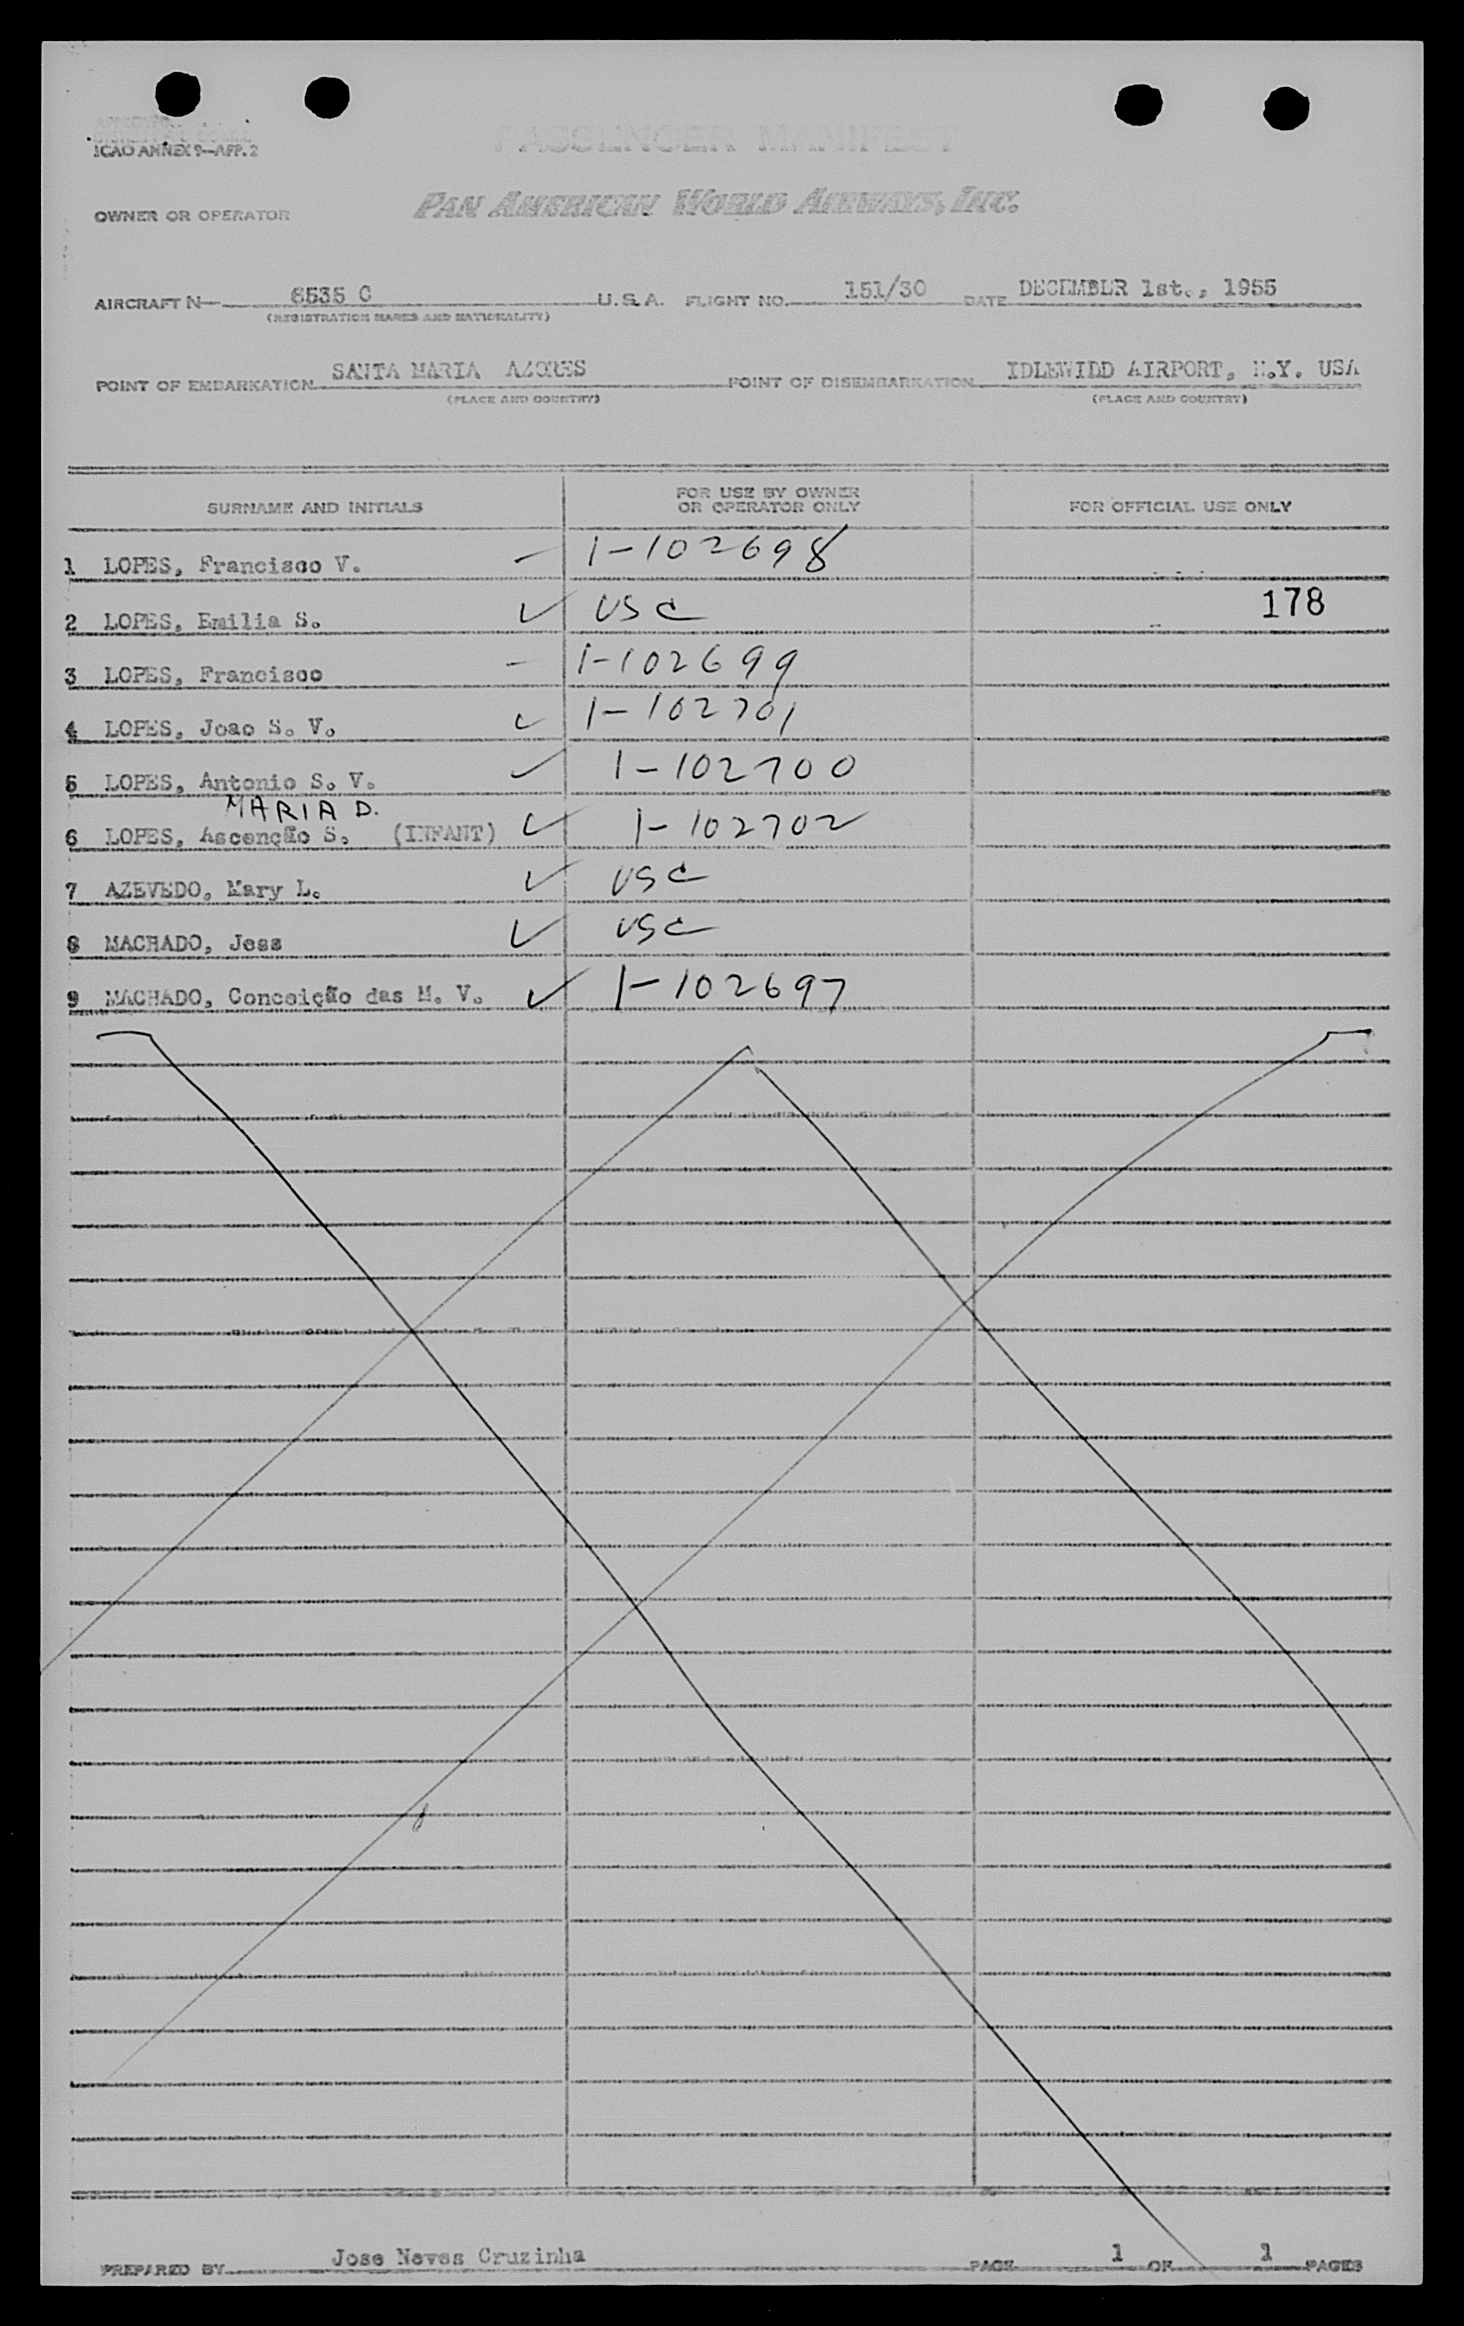 ICAO ANNEX 9—APP. 2
PASSENGER MANIFEST
OWNER OR OPERATOR
PAN AMERICAN WORLD AIRWAYS, INC.
AIRCRAFT N— 6535 C U. S. A. FLIGHT NO. 151/30 DATE DECEMBER 1st., 1955
(REGISTRATION MARKS AND NATIONALITY)
POINT OF EMBARKATION SANTA MARIA AZORES POINT OF DISEMBARKATION IDLEWIDD AIRPORT, N.Y. USA
(PLACE AND COUNTRY) (PLACE AND COUNTRY)
SURNAME AND INITIALS FOR USE BY OWNER OR OPERATOR ONLY FOR OFFICIAL USE ONLY
1 LOPES, Francisco V. — 1-102698
178
2 LOPES, Emilia S. ✓ USC
3 LOPES, Francisco — 1-102699
4 LOPES, Joao S. V. ✓ 1-102701
5 LOPES, Antonio S. V. ✓ 1-102700
MARIA D.
6 LOPES, Ascenção S. (INFANT) ✓ 1-102702
7 AZEVEDO, Mary L. ✓ USC
8 MACHADO, Jess ✓ USC
9 MACHADO, Conceição das M. V. ✓ 1-102697
PREPARED BY Jose Neves Cruzinha PAGE 1 OF 1 PAGES